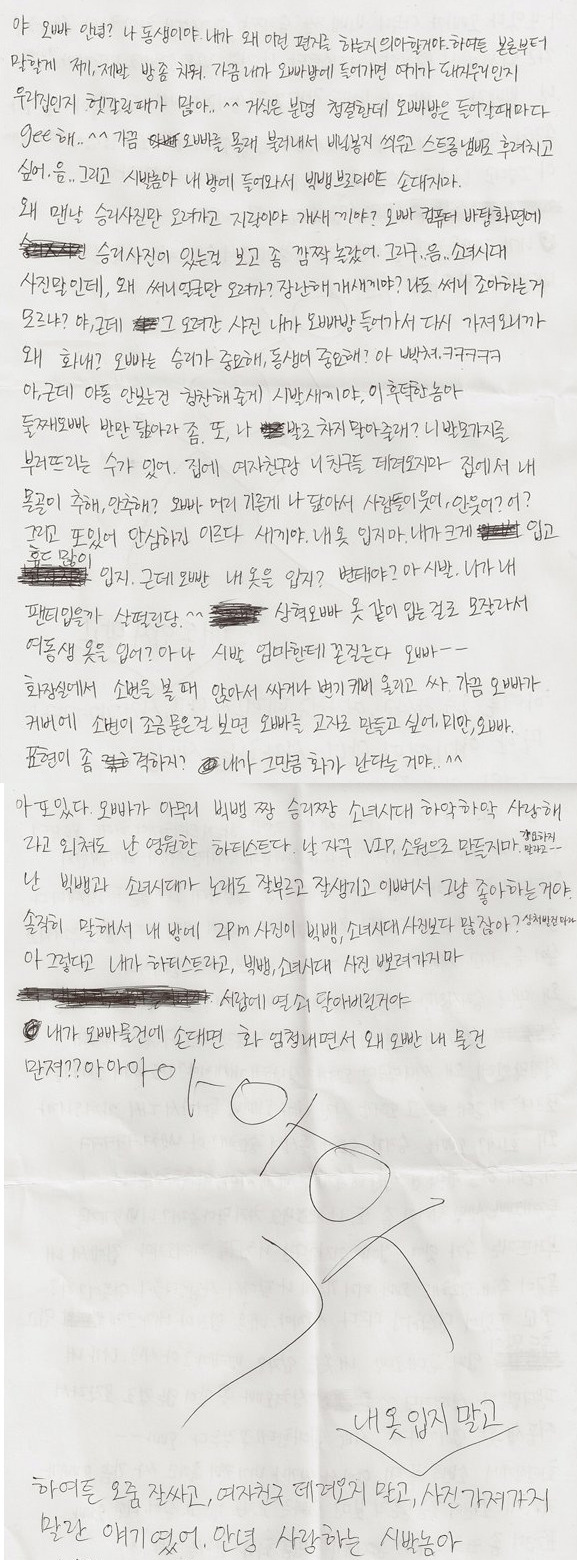 야 오빠 안녕? 나 동생이야. 내가 왜 이런 편지를 하는지 의아할거야. 하여튼 본론부터
말할게 제기, 제발 방 좀 치워. 가끔 내가 오빠방에 들어가면 여기가 돼지우리인지
우리집인지 헷갈릴때가 많아.. ^^ 거실은 분명 청결한데 오빠방은 들어갈때마다
gee해..^^ 가끔 오빠를 몰래 불러내서 비닐봉지 씌우고 스트롱냄비로 후려치고
싶어. 음.. 그리고 시발놈아 내 방에 들어와서 빅뱅브로마이드 손대지마.
왜 맨날 승리사진만 오려가고 지랄이야 개새끼야? 오빠 컴퓨터 바탕화면에
승리사진이 있는걸 보고 좀 깜짝 놀랐어. 그리구..음..소녀시대
사진말인데, 왜 써니얼굴만 오려가? 장난해 개새끼야? 나도 써니 조아하는거
모르냐? 야, 근데 그 오려간 사진 내가 오빠방 들어가서 다시 가져오니까
왜 화내? 오빠는 승리가 중요해, 동생이 중요해? 아 빡쳐.ㅋㅋㅋㅋㅋ
아, 근데 야동 안보는건 칭찬해줄게 시발새끼야, 이 후덕한놈아
둘째오빠 반만 닮아라 좀. 또, 나 발로 차지 말아줄래? 니 발모가지를
부러뜨리는 수가 있어. 집에 여자친구랑 니친구들 데려오지마 집에서 내
몰골이 추해, 안추해? 오빠 머리 기른게 나 닮아서 사람들이 웃어, 안웃어? 어?
그리고 또있어 안심하긴 이르다 새끼야. 내 옷 입지마. 내가 크게 입고
후드 많이
입지. 근데 오빤 내 옷을 입지? 변태야? 아 시발. 니가 내
팬티입을까 살떨린당.^^ 상혁오빠 옷 같이 입는걸로 모잘라서
여동생 옷을 입어? 아나 시발 엄마한테 꼰질는다 오빠--
화장실에서 소변을 볼 때 앉아서 싸거나 변기커버 올리고 싸. 가끔 오빠가
커버에 소변이 조금 묻은걸 보면 오빠를 고자로 만들고 싶어. 미안, 오빠.
표현이 좀 격하지? 내가 그만큼 화가 난다는 거야..^^
아 또있다. 오빠가 아무리 빅뱅 짱 승리짱 소녀시대 하악하악 사랑해
라고 외쳐도 난 영원한 하티스트다. 날 자꾸 VIP, 소원으로 만들지마. 강요하지 말라고--
난 빅뱅과 소녀시대가 노래도 잘부르고 잘생기고 이뻐서 그냥 좋아하는거야.
솔직히 말해서 내 방에 2pm 사진이 빅뱅, 소녀시대 사진보다 많잖아?
아 그렇다고 내가 하티스트라고, 빅뱅, 소녀시대 사진 뽀려가지마
서랍에 열쇠 달아버릴거야
내가 오빠물건에 손대면 화 엄청내면서 왜 오빤 내 물건
만져??아아아아아악
내 옷 입지 말고
하여튼 오줌 잘싸고, 여자친구 데려오지 말고, 사진 가져가지
말란 얘기였어. 안녕 사랑하는 시발놈아